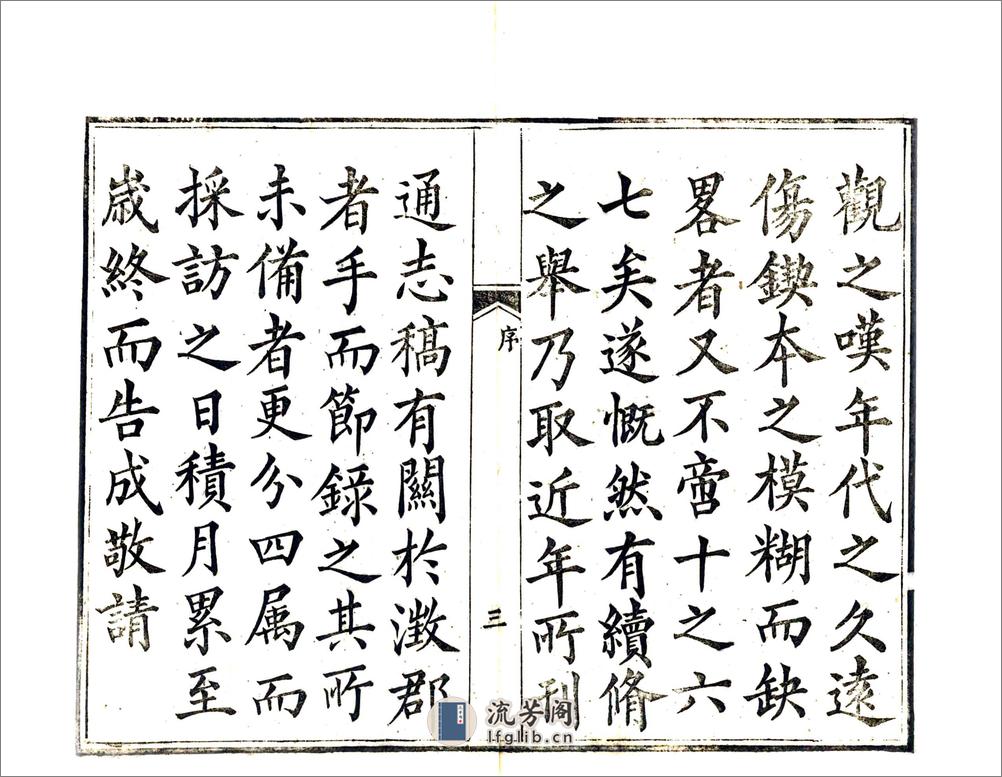 觀之嘆年代之久遠
傷鍥本之模糊而缺
畧者又不啻十之六
七矣遂慨然有續脩
之舉乃取近年所刊
序
三
通志稿有關於澂郡
者手而節錄之其所
未備者更分四属而
採訪之日積月累至
歳終而告成敬請
流芳阁
lfglib.cn